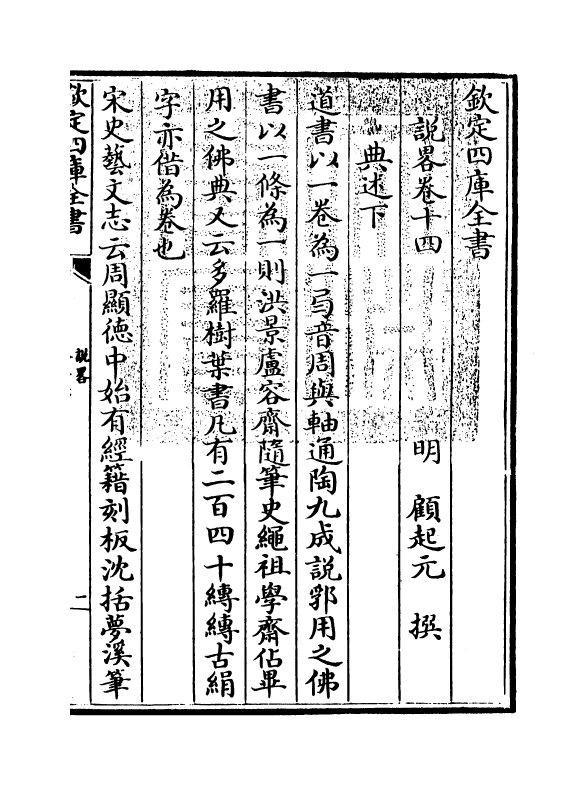 欽定四庫全書
說畧卷十四
明 顧起元 撰
典述下
道書以一卷為一弓音周與軸通陶九成說郛用之佛
書以一條為一則洪景盧容齋隨筆史繩祖學齋佔畢
用之佛典又云多羅樹葉書凡有二百四十縳縳古絹
字亦借為卷也
宋史藝文志云周顯徳中始有經籍刻板沈括夢溪筆
欽定四庫全書
說畧